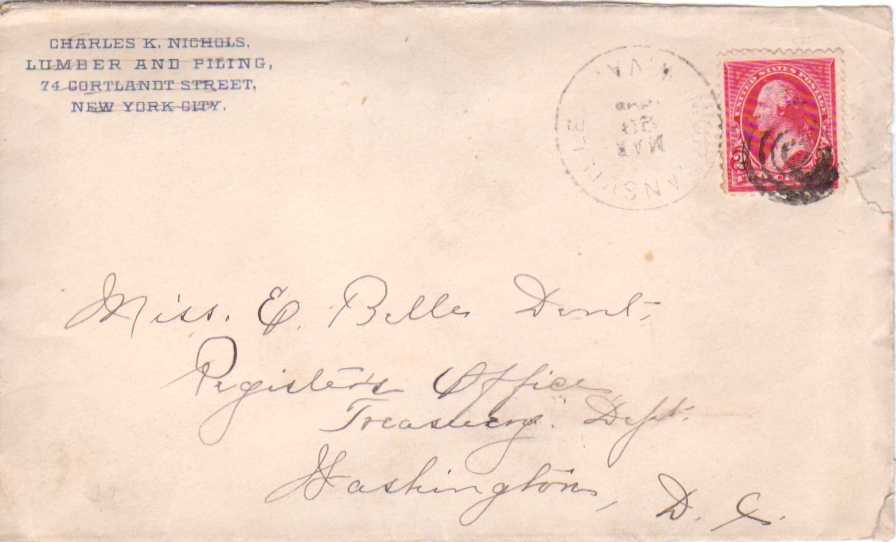 CHARLES K. NICHOLS,
LUMBER AND PILING,
74 CORTLANDT STREET,
NEW YORK CITY.
W. VA.
MAR
UNITED STATES POSTAGE
Miss. E. Belle Dent,
Register's Office
Treasury. Dept.
Washington, D. C.